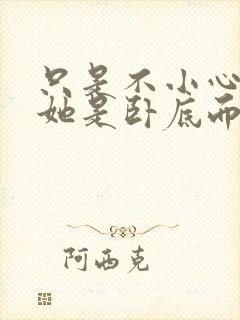 只是不小心
她是卧底而
阿西克